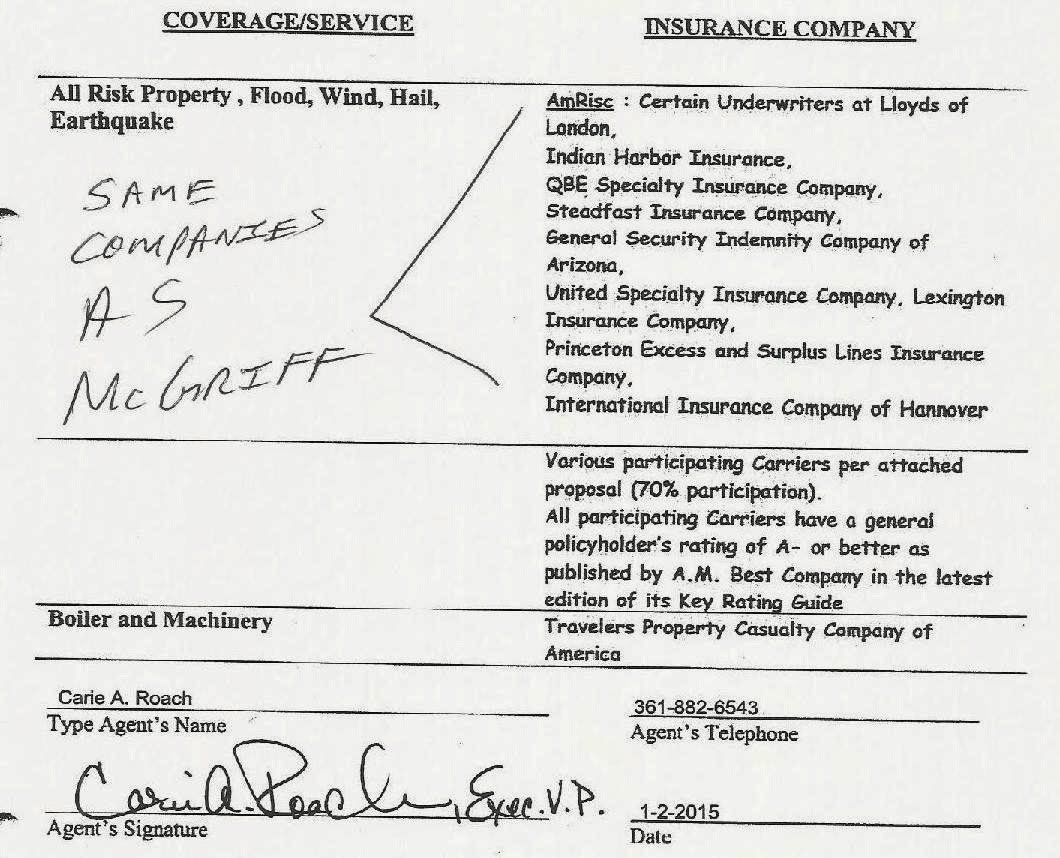 COVERAGE/SERVICE
INSURANCE COMPANY
All Risk Property , Flood, Wind, Hail,
Earthquake
SAME
COMPANIES
AS
McGRIFF
AmRisc : Certain Underwriters at Lloyds of
London,
Indian Harbor Insurance,
QBE Specialty Insurance Company,
Steadfast Insurance Company,
General Security Indemnity Company of
Arizona,
United Specialty Insurance Company, Lexington
Insurance Company,
Princeton Excess and Surplus Lines Insurance
Company,
International Insurance Company of Hannover
Various participating Carriers per attached
proposal (70% participation).
All participating Carriers have a general
policyholder's rating of A- or better as
published by A.M. Best Company in the latest
edition of its Key Rating Guide
Boiler and Machinery
Travelers Property Casualty Company of
America
Carie A. Roach
Type Agent's Name
361-882-6543
Agent's Telephone
Carie A. Roach, Exec. V.P.
Agent's Signature
1-2-2015
Date